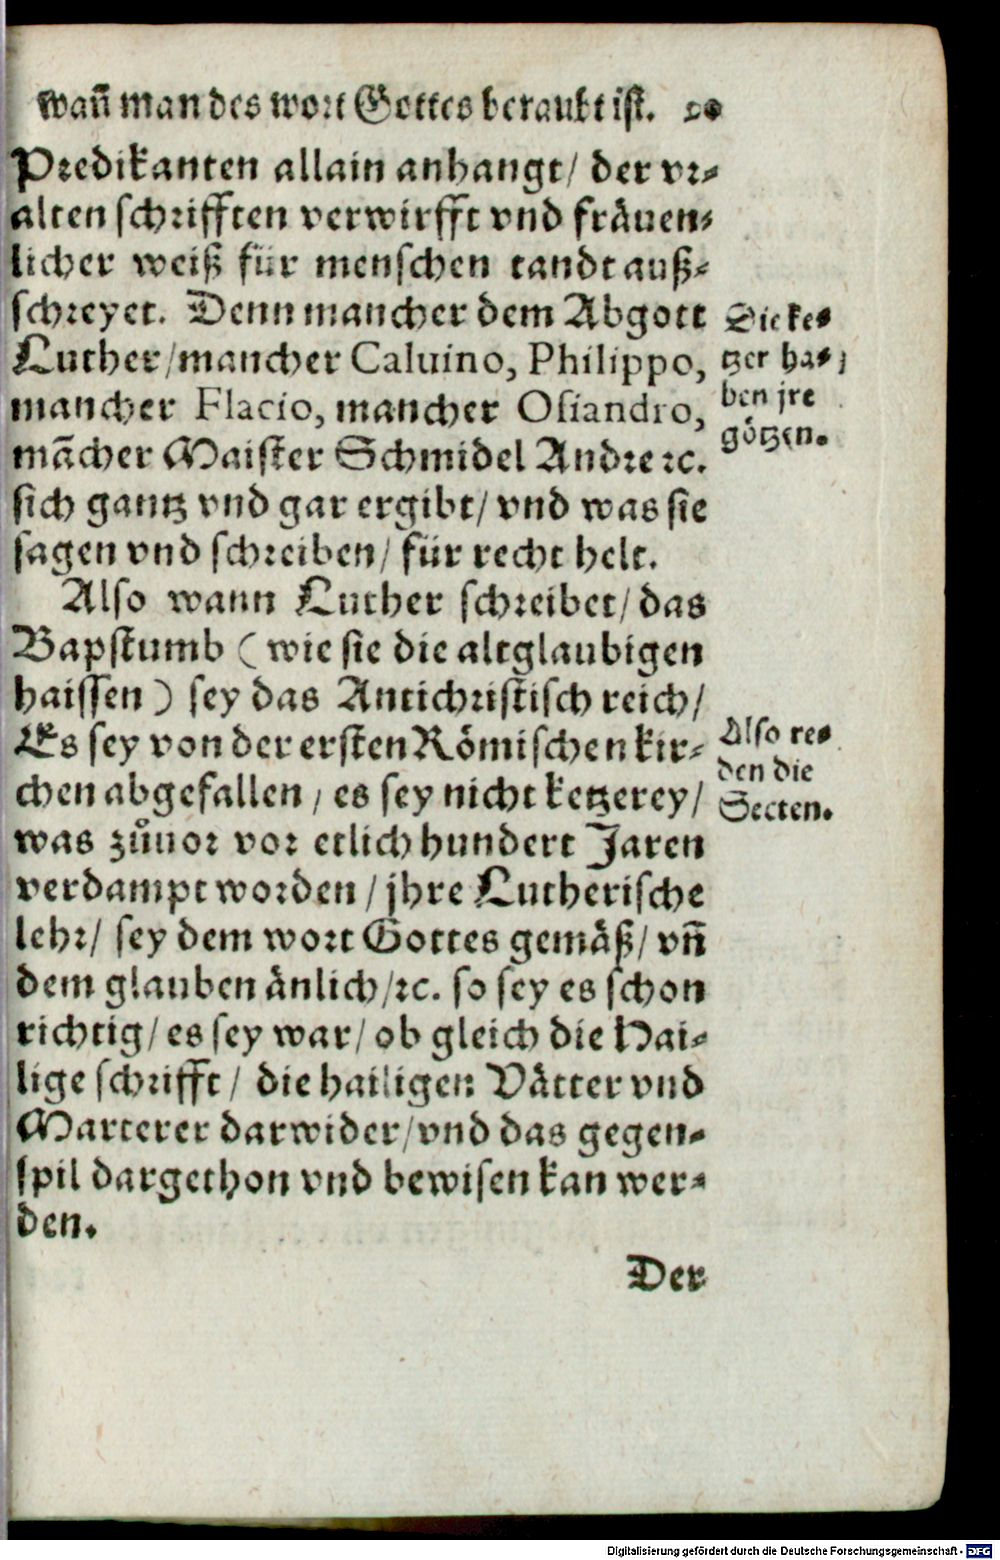 wañ man des wort Gottes beraubt ist.
Predikanten allain anhangt/ der vr⸗
alten schrifften verwirfft vnd fräuen⸗
licher weiß für menschen tandt auß⸗
schreyet. Denn mancher dem Abgott
Luther/mancher Caluino, Philippo,
mancher Flacio, mancher Osiandro,
mãcher Maister Schmidel Andre ꝛc.
sich gantz vnd gar ergibt/ vnd was sie
sagen vnd schreiben/ für recht helt.
Die ke⸗
tzer ha⸗
ben jre
götzen.
Also wann Luther schreibet/ das
Bapstumb (wie sie die altglaubigen
haissen) sey das Antichristisch reich/
Es sey von der ersten Römischen kir⸗
chen abgefallen/ es sey nicht ketzerey/
was zůuor vor etlich hundert Jaren
verdampt worden/ jhre Lutherische
lehr/ sey dem wort Gottes gemäß/ vñ
dem glauben änlich/ꝛc. so sey es schon
richtig/ es sey war/ ob gleich die Hai⸗
lige schrifft/ die hailigen Vätter vnd
Marterer darwider/vnd das gegen⸗
spil dargethon vnd bewisen kan wer⸗
den.
Also re⸗
den die
Secten.
Der
Digitalisierung gefördert durch die Deutsche Forschungsgemeinschaft - DFG